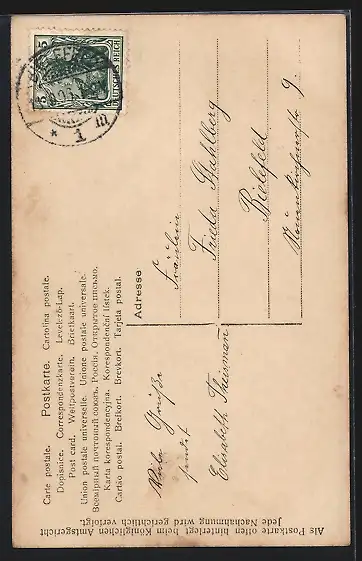 Carte postale. Postkarte. Cartolina postale.
Dopisnice. Correspondenzkarte. Levelező-Lap.
Post card. Weltpostverein. Briefkaart.
Union postale universelle. Unione postale universale.
Всемірный почтовый союзъ. Россія. Открытое письмо.
Karta korespondencyjna. Korespondenční lístek.
Cartão postal. Brefkort. Brevkort. Tarjeta postal.
Viele Grüße
sendet
Elisabeth Theisman
Adresse
Fräulein
Frieda Stahlberg
Bielefeld
9.
DEUTSCHES REICH
5
5
* 1 m
Als Postkarte offen hinterlegt beim Königlichen Amtsgericht
Jede Nachahmung wird gerichtlich verfolgt.